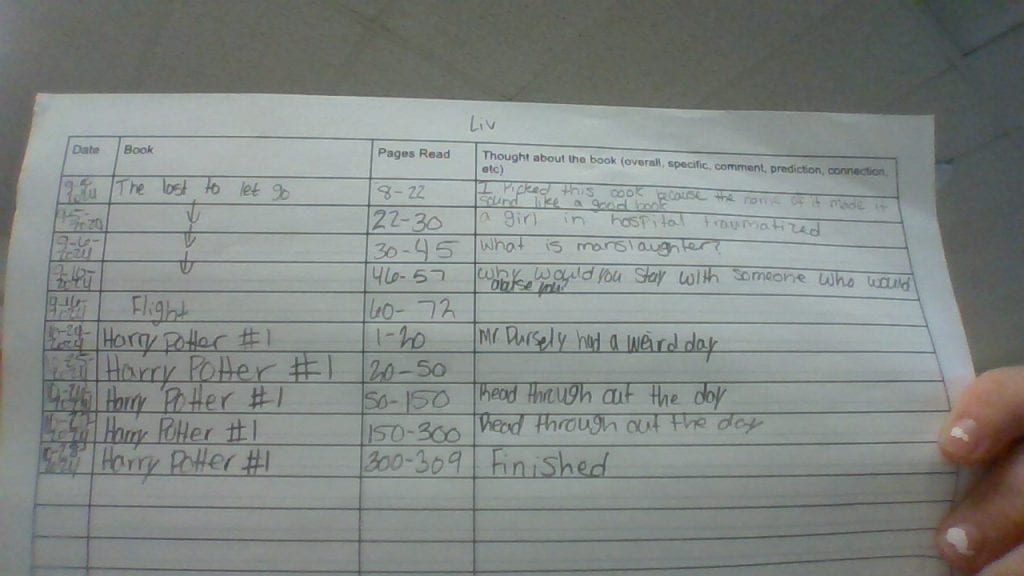 Liv
Date Book Pages Read Thought about the book (overall, specific, comment, prediction, connection, etc)
The last to let go 8-22 I Picked this book because the name of it made it
sound like a good book
↓ 22-30 a girl in hospital traumatized
↓ 30-45 What is manslaughter?
↓ 46-57 why would you stay with someone who would
abuse you?
Flight 60-72
Harry Potter #1 1-20 Mr. Dursely had a weird day
Harry Potter #1 20-50
Harry Potter #1 50-150 Read through out the day
Harry Potter #1 150-300 Read through out the day
Harry Potter #1 300-309 Finished